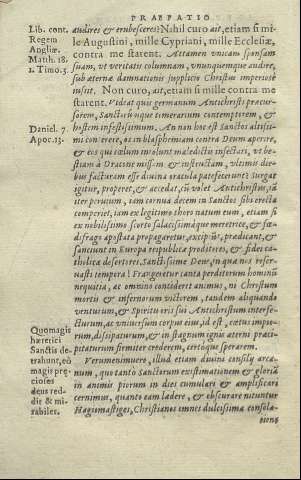 PRAEFATIO
Lib. cont.
Regem
Angliæ.
Matth. 18.
1. Timo. 3.
audires & erubesceres? Nihil curo ait, etiam si mi-
le Augustini, mille Cypriani, mille Ecclesiæ,
contra me starent. Attamen unicam sponsam
suam, ut veritatis columnam, unumquemque audire,
sub æternæ damnationis supplicio Christus imperiose
iussit. Non curo, ait, etiam si mille contra me
starent. Videat quis germanum Antichristi præcur-
sorem, Sanctorum que timerarium contemptorem, &
Daniel. 7.
Apoc. 13.
hostem infestissimum. An non hoc est Sanctos altissi-
mi conterere, os in blasphemiam contra Deum aperire,
& eos qui cælum maledictis infectari, ut be-
stiam à Dracone missam & instructam, ultimis die-
bus facturam esse divina oracula patefecerunt? Surgat
igitur, properet, & accedat, cum volet Antichristus, iā
iter tutum, tam cornua decem in Sanctos sibi erecta
comperiet, iam ex legitimo thoro natum eum, etiam si
ex nobilissimo scorto salacissimaque meretrice, & fœ-
difrago apostata propagetur, excipiūt, prædicant, &
sanciunt in Europa reipublicæ proditores, & fidei ca-
tholicæ desertores. Sanctissime Deus, in quæ nos refer-
vasti tempora? Frangetur tanta perditorum hominū
nequitia, ac omnino confiderent animus, ni Christum
mortis & infernorum victorem, tandem aliquando
venturum, & Spiritu oris sui Antichristum interfe-
cturum, ac universum corpus eius, id est, cætus impio-
rum, dissipaturum, & in stagnum ignis æterni præci-
pitaturum firmiter crederem, certoque sperarem.
Quomagis
hæretici
Sanctis de-
trahunt, eò
magis pre-
ciosos
deus red-
dit & mi-
rabiles.
Verumenimvero, illud etiam divini consilij arca-
num, quo tantò Sanctorum existimationem & gloriā
in animis piorum in dies cumulari & amplificari
cernimus, quanto eam lædere, & obscurare nituntur
Hagiomastiges, Christianos omnes dulcissima consola-
tione